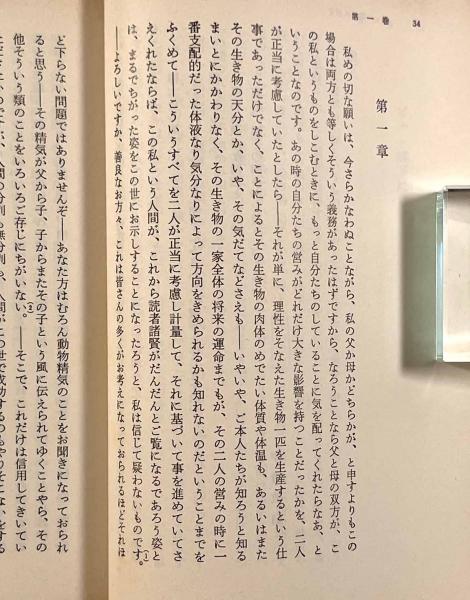 第一巻 34
第一章
私めの切な願いは、今さらかなわぬことながら、私の父か母かどちらかが、と申すよりもこの
場合は両方とも等しくそういう義務があったはずですから、なろうことなら父と母の双方が、こ
の私というものをしこむときに、もっと自分たちのしていることに気を配ってくれたらなあ、と
いうことなのです。あの時の自分たちの営みがどれだけ大きな影響を持つことだったかを、二人
が正当に考慮していたとしたら——それが単に、理性をそなえた生き物一匹を生産するという仕
事であっただけでなく、ことによるとその生き物の肉体のめでたい体質や体温も、あるいはまた
その生き物の天分とか、いや、その気だてなどさえも——いやいや、ご本人たちが知ろうと知る
まいとにかかわりなく、その生き物の一家全体の将来の運命までもが、その二人の営みの時に一
番支配的だった体液なり気分なりによって方向をきめられるかも知れないのだということまでを
ふくめて——こういうすべてを二人が正当に考慮し計量して、それに基づいて事を進めていてさ
えくれたならば、この私という人間が、これから読者諸賢がだんだんとご覧になるであろう姿と
は、まるでちがった姿をこの世にお示しすることになったろうと、私は信じて疑わないものです。(1)
——よろしいですか、善良なお方々、これは皆さんの多くがお考えになっておられるほどそれほ
ど下らない問題ではありませんぞ——あなた方はむろん動物精気のことをお聞きになっておられ
ると思う——その精気が父から子、子からまたその子という風に伝えられてゆくことやら、その
他そういう類のことをいろいろご存じにちがいない。(2)——そこで、これだけは信用してきいてい